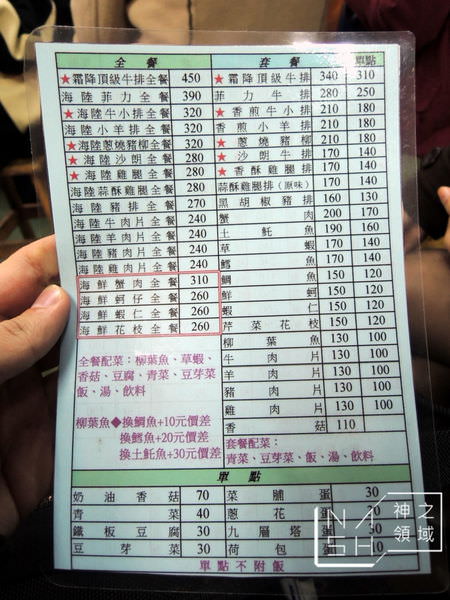 全餐 套餐 單點
★霜降頂級牛排全餐 450 ★霜降頂級牛排 340 310
海陸菲力全餐 390 菲力牛排 280 250
★海陸牛小排全餐 320 ★香煎牛小排 210 180
海陸小羊排全餐 320 香煎小羊排 210 180
★海陸蔥燒豬柳全餐 320 ★蔥燒豬柳 210 180
★海陸沙朗全餐 280 ★沙朗牛排 170 140
★海陸雞腿全餐 280 ★香酥雞腿排 170 140
海陸蒜酥雞腿全餐 280 蒜酥雞腿排(原味) 170 140
海陸豬排全餐 270 黑胡椒豬排 160 130
海陸牛肉片全餐 240 蟹肉 200 170
海陸羊肉片全餐 240 土魠魚 190 160
海陸豬肉片全餐 240 草蝦 170 140
海陸雞肉片全餐 240 鱈魚 170 140
海鮮蟹肉全餐 310 鯛魚 150 120
海鮮蚵仔全餐 260 鮮蚵 150 120
海鮮蝦仁全餐 260 蝦仁 150 120
海鮮花枝全餐 260 芹菜花枝 150 120
柳葉魚 130 100
牛肉片 130 100
羊肉片 130 100
豬肉片 130 100
雞肉片 130 100
香菇 110
全餐配菜：柳葉魚、草蝦、
香菇、豆腐、青菜、豆芽菜
飯、湯、飲料
柳葉魚◆換鯛魚+10元價差
換鱈魚+20元價差
換土魠魚+30元價差
套餐配菜：
青菜、豆芽菜、飯、湯、飲料
單點
奶油香菇 70 菜脯蛋 30
青菜 40 蔥花蛋
鐵板豆腐 30 九層塔蛋
豆芽菜 30 荷包蛋 10
單點不附飯
神之領域